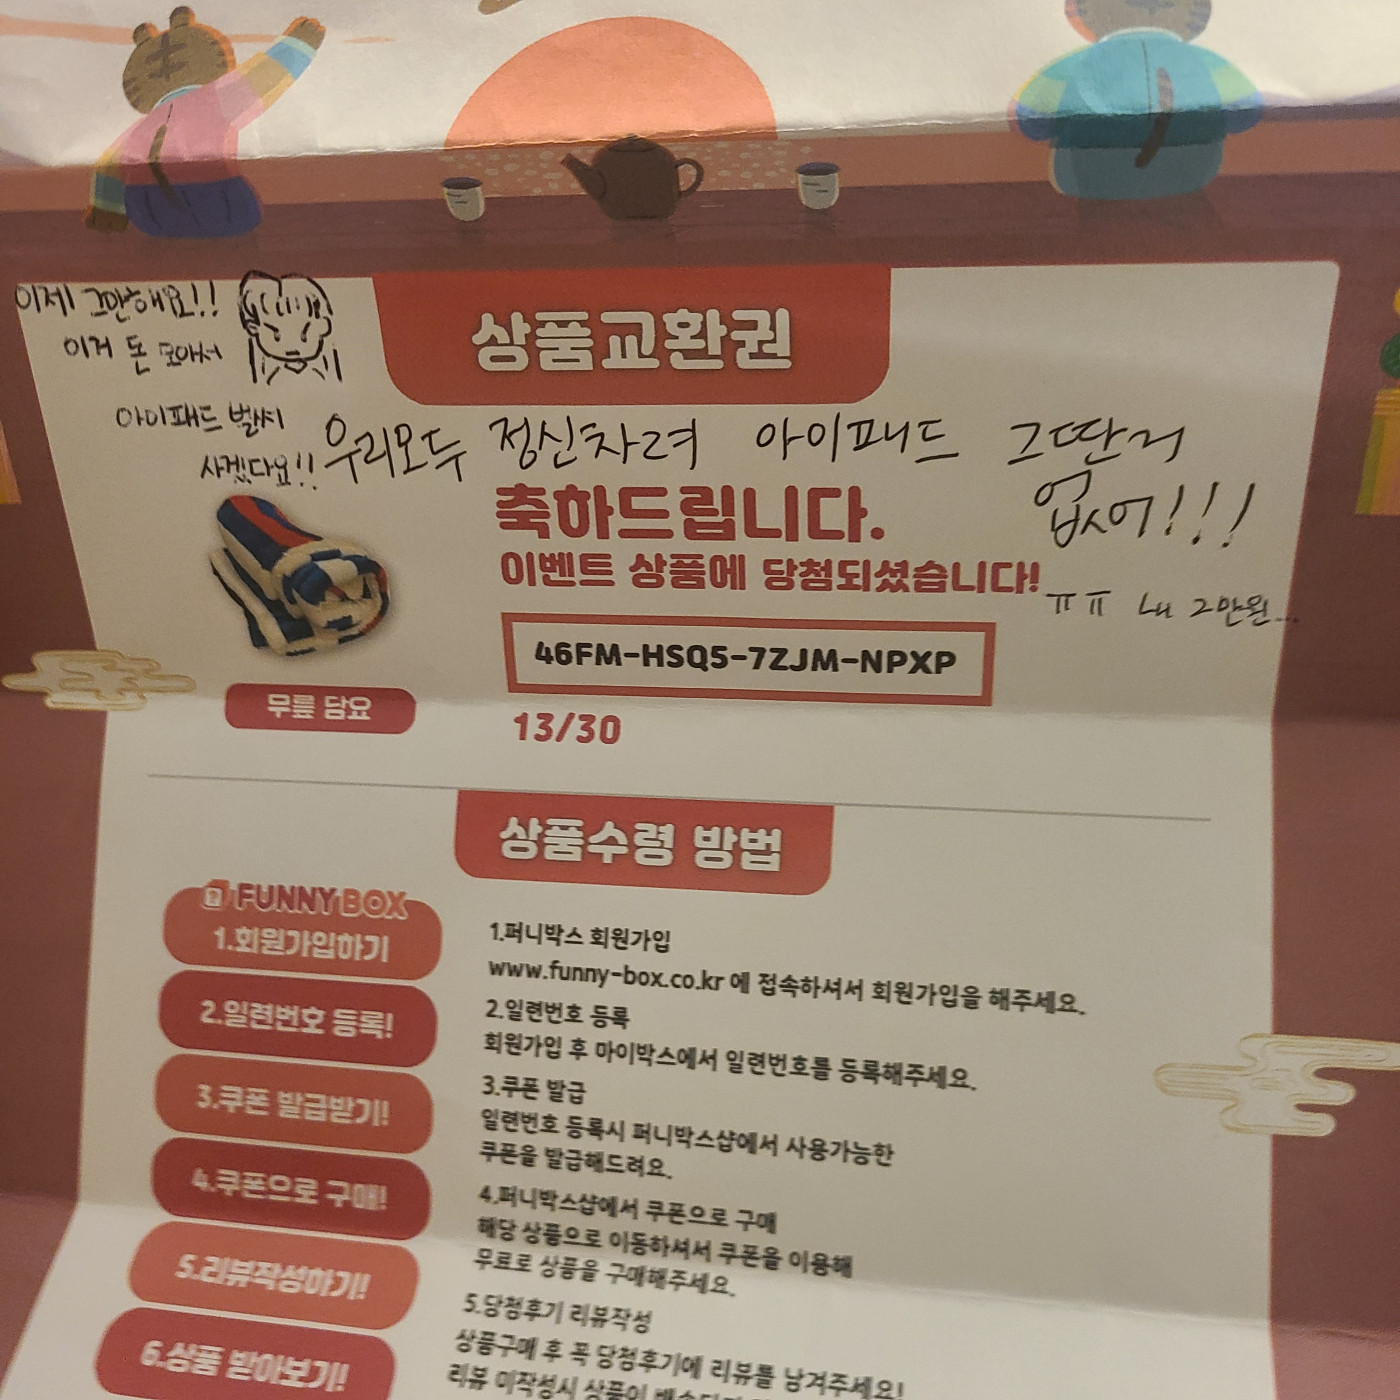 이제 그만해요!!
이거 돈 모아서
아이패드 벌써
사겠다요!!
상품교환권
우리모두 정신차려 아이패드 그딴거
없어!!!
축하드립니다.
이벤트 상품에 당첨되셨습니다!
ㅠㅠ 내 2만원...
46FM-HSQ5-7ZJM-NPXP
무릎 담요
13/30
상품수령 방법
FUNNY BOX
1.회원가입하기
2.일련번호 등록!
3.쿠폰 발급받기!
4.쿠폰으로 구매!
5.리뷰작성하기!
6.상품 받아보기!
1.퍼니박스 회원가입
www.funny-box.co.kr 에 접속하셔서 회원가입을 해주세요.
2.일련번호 등록
회원가입 후 마이박스에서 일련번호를 등록해주세요.
3.쿠폰 발급
일련번호 등록시 퍼니박스샵에서 사용가능한
쿠폰을 발급해드려요.
4.퍼니박스샵에서 쿠폰으로 구매
해당 상품으로 이동하셔서 쿠폰을 이용해
무료로 상품을 구매해주세요.
5.당첨후기 리뷰작성
상품구매 후 꼭 당첨후기에 리뷰를 남겨주세요!
리뷰 미작성시 상품이